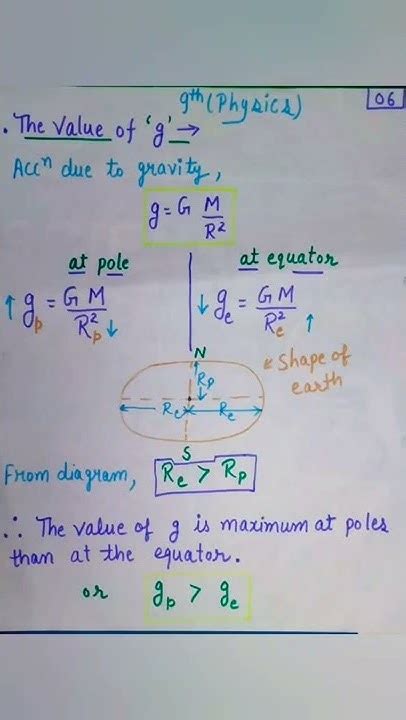 9th (Physics)
06
. The Value of 'g' →
Accn due to gravity,
g = G M/R²
at pole
↑ gp = GM/Rp² ↓
at equator
↓ ge = GM/Re² ↑
N
Rp
Re Re
S
Shape of
earth
From diagram, Re > Rp
∴ The value of g is maximum at poles
than at the equator.
or gp > ge